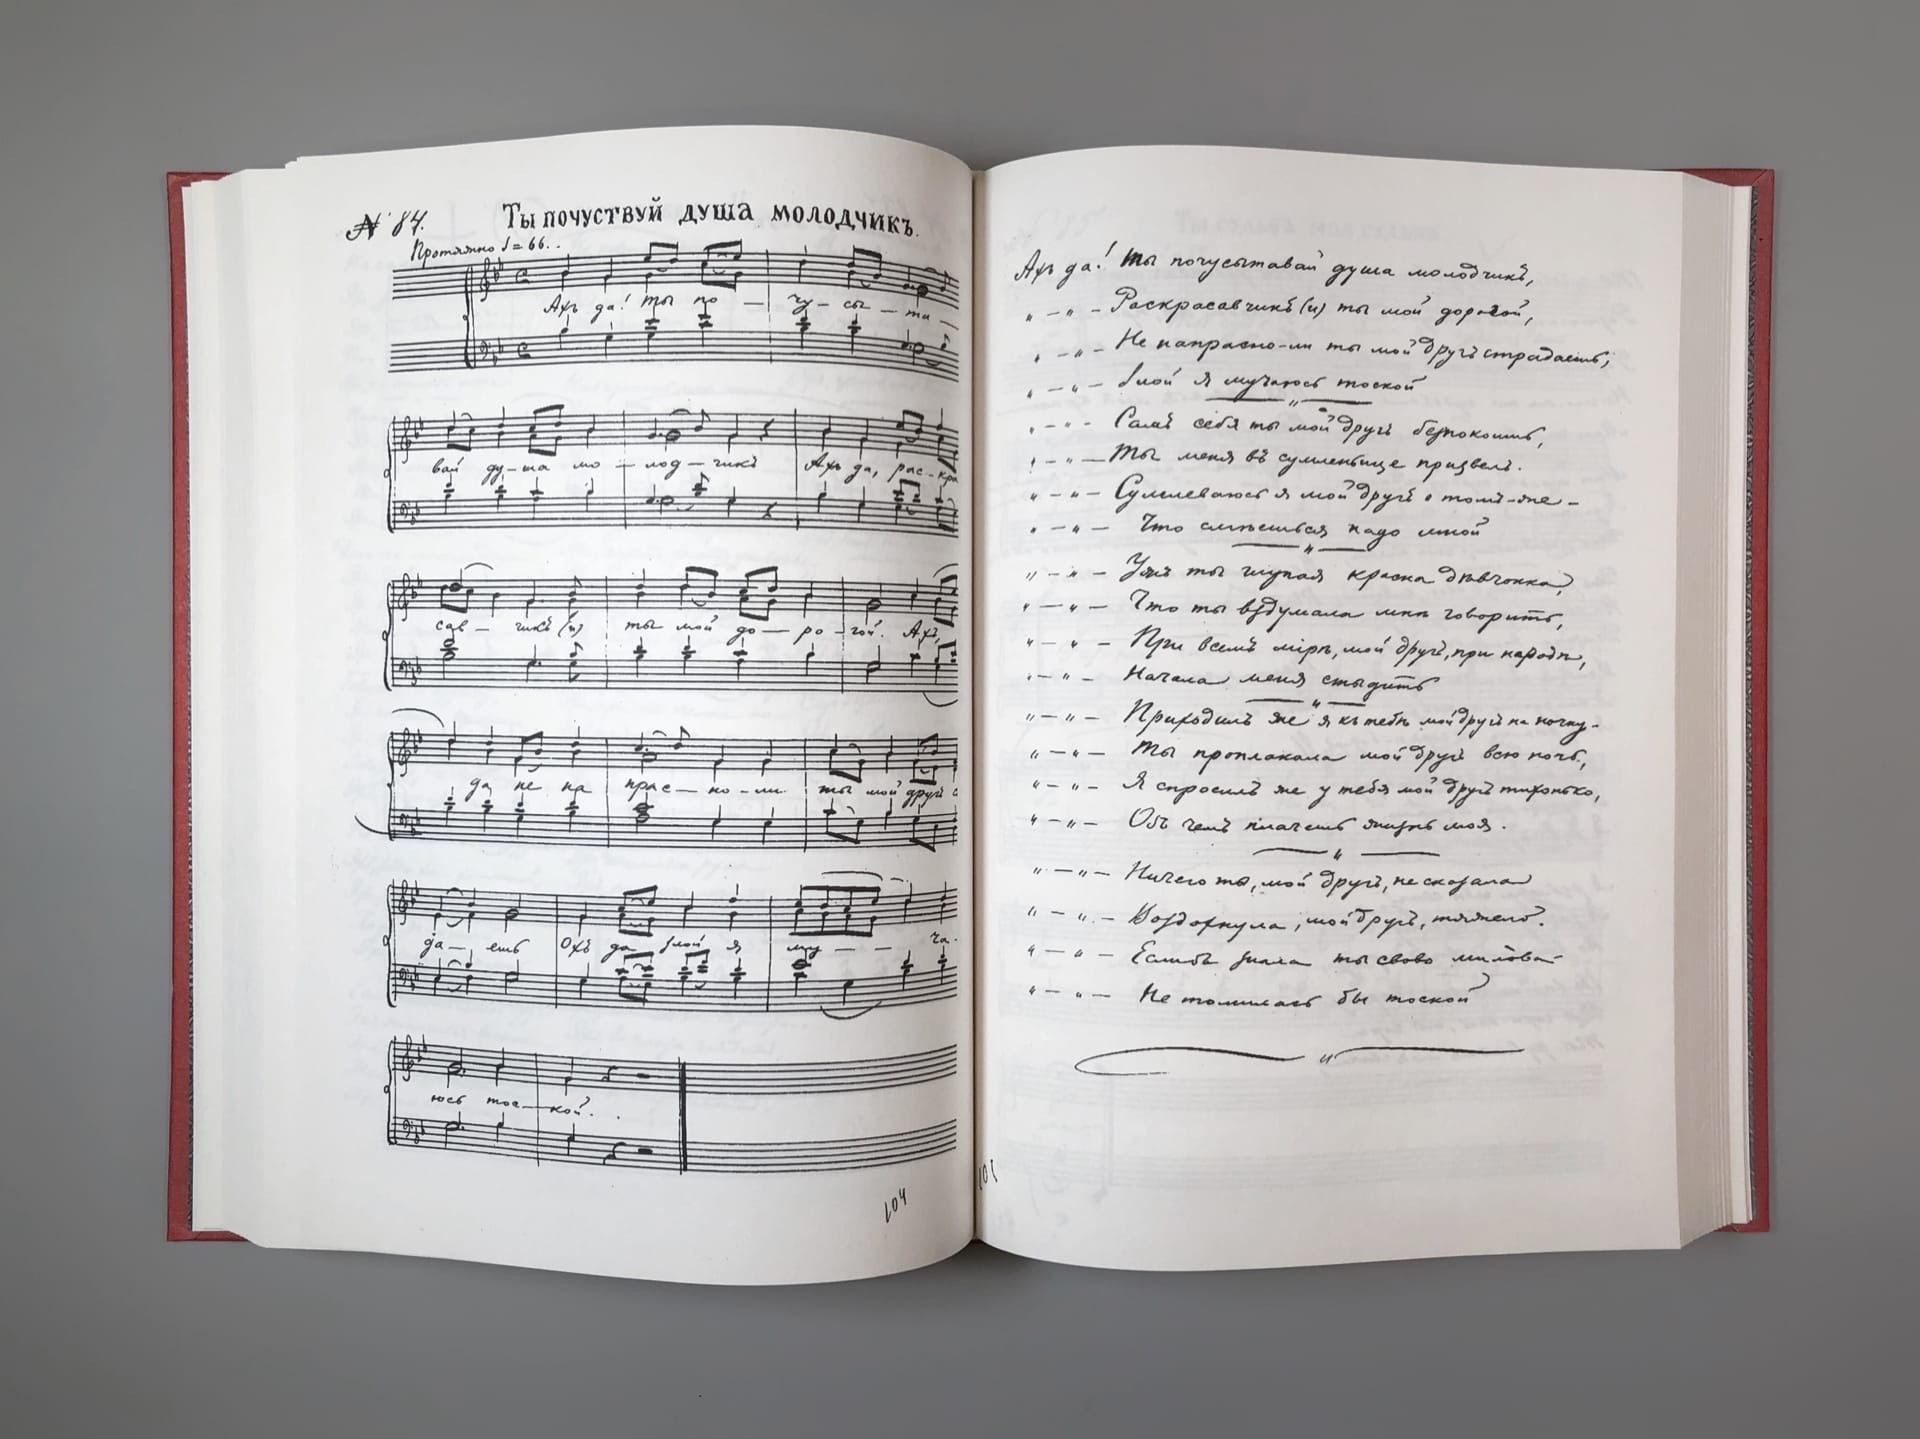 № 84.
Ты почуствуй душа молодчикъ.
Протяжно ♩= 66..
Ахъ да! ты по — чу — сы — та —
вай ду — ша мо — лод — чикъ Ахъ да, рас — кра
сав — чикъ (и) ты мой до — ро — гой. Ахъ,
да не на прас — но — ли ты мой другъ с
да — ешь Охъ да злой я му — — ча -
юсь тос — кой.
104
Ахъ да! ты почусытавай душа молодчикъ,
" — " — Раскрасавчикъ (и) ты мой дорогой,
" — " — Не напрасно-ли ты мой другъ страдаешь,
" — " — Злой я мучаюсь тоской
— " —
" — " — Самъ себя ты мой другъ безпокоишь,
" — " — Ты меня въ сумленьице призвелъ.
" — " — Сумлеваюсь я мой другъ о томъ-же -
" — " — Что смѣешься надо мной
— " —
" — " — Ужъ ты глупая красна дѣвчонка,
" — " — Что ты вздумала мнѣ говорить,
" — " — При всемъ мірѣ, мой другъ, при народѣ,
" — " — Начала меня стыдить
— " —
" — " — Приходилъ же я къ тебѣ мой другъ на ночку -
" — " — Ты проплакала мой другъ всю ночь,
" — " — Я спросилъ же у тебя мой другъ тихонько,
" — " — Объ чемъ плачешь жизнь моя.
— " —
" — " — Ничего ты, мой другъ, не сказала
" — " — Воздохнула, мой другъ, тяжело.
" — " — Еслибъ знала ты свово милова
" — " — Не томилась бы тоской
— " —
105